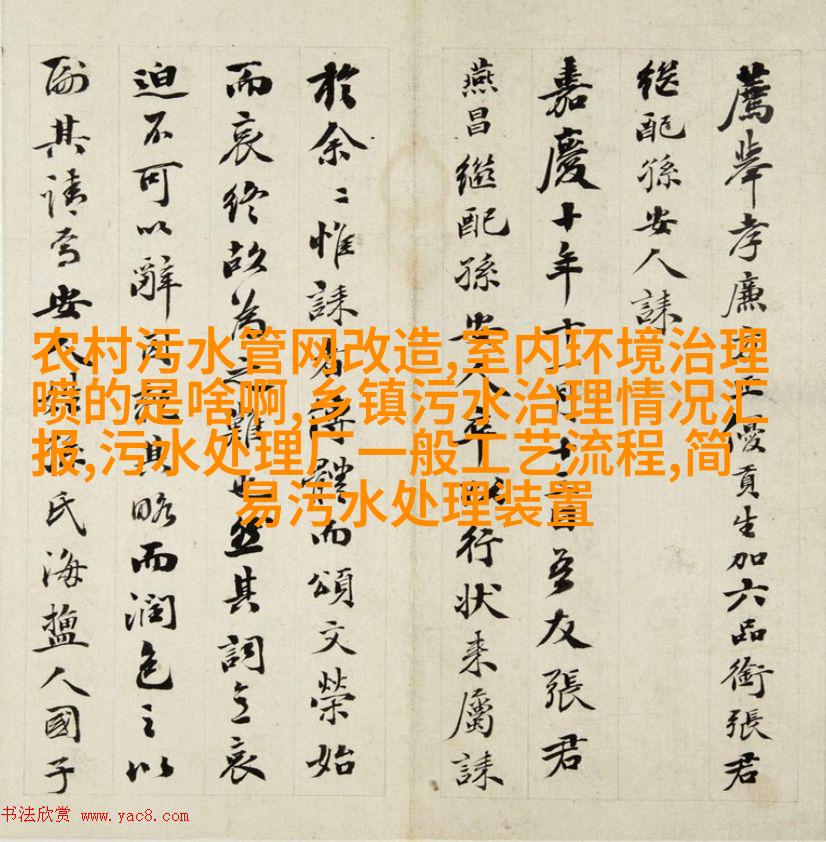 薦舉孝廉方正優貢生加六品銜張君
继配孫安人誄
嘉慶十年十月十日吾友張君
燕昌繼配孫安人卒行状来屬誄
於余〻惟誄有而頌文榮始
而哀終故為之難也然其詞哀
迫不可以辭其略而潤色之以
副其請焉安人氏海鹽人國子
农村污水管网改造,室内环境治理
喷的是啥啊,乡镇污水治理情况汇
报,污水处理厂一般工艺流程,简
易污水处理装置
书法欣赏 www.yac8.com